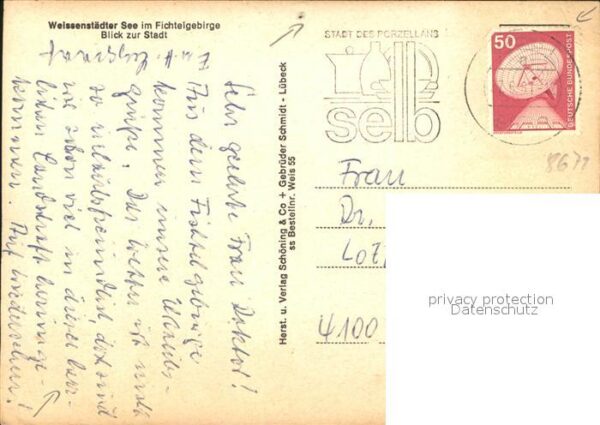 Weissenstädter See im Fichtelgebirge
Blick zur Stadt
Sehr geehrte Frau Doktor!
Aus dem Fichtelgebirge
kommen unsere Urlaubs-
grüße. Das Wetter ist nicht
so urlaubsfreundlich, doch sind
wir schon viel in dieser herr-
lichen Landschaft herumge-
kommen. Auf Wiedersehen!
Herst. u. Verlag Schöning & Co + Gebrüder Schmidt - Lübeck
ss Bestellnr. Weis 55
STADT DES PORZELLANS
selb
50
DEUTSCHE BUNDESPOST
8671
Frau
Dr.
4100
privacy protection
Datenschutz